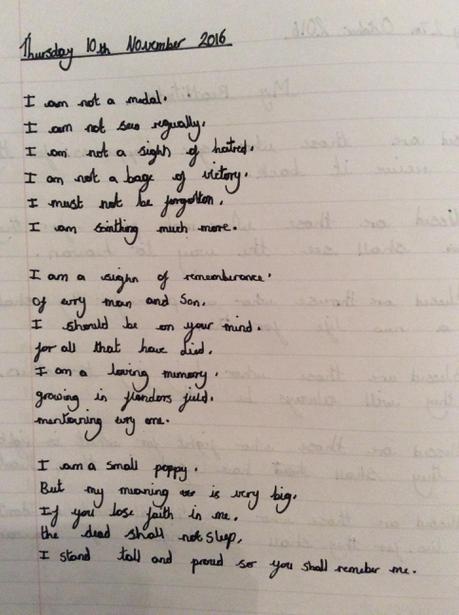 Thursday 10th November 2016
I am not a medal.
I am not seo regually.
I am not a sighn of hatred.
I am not a bage of victory.
I must not be forgotton.
I am somthing much more.
I am a sighn of rememberance.
Of evry man and Son.
I should be on your mind.
for all that have died.
I am a loving memory.
growing in flanders field.
mentouring evry one.
I am a small poppy.
But my meaning is very big.
If you lose faith in me.
the dead shall not sleep.
I stand tall and proud so you shall remeber me.